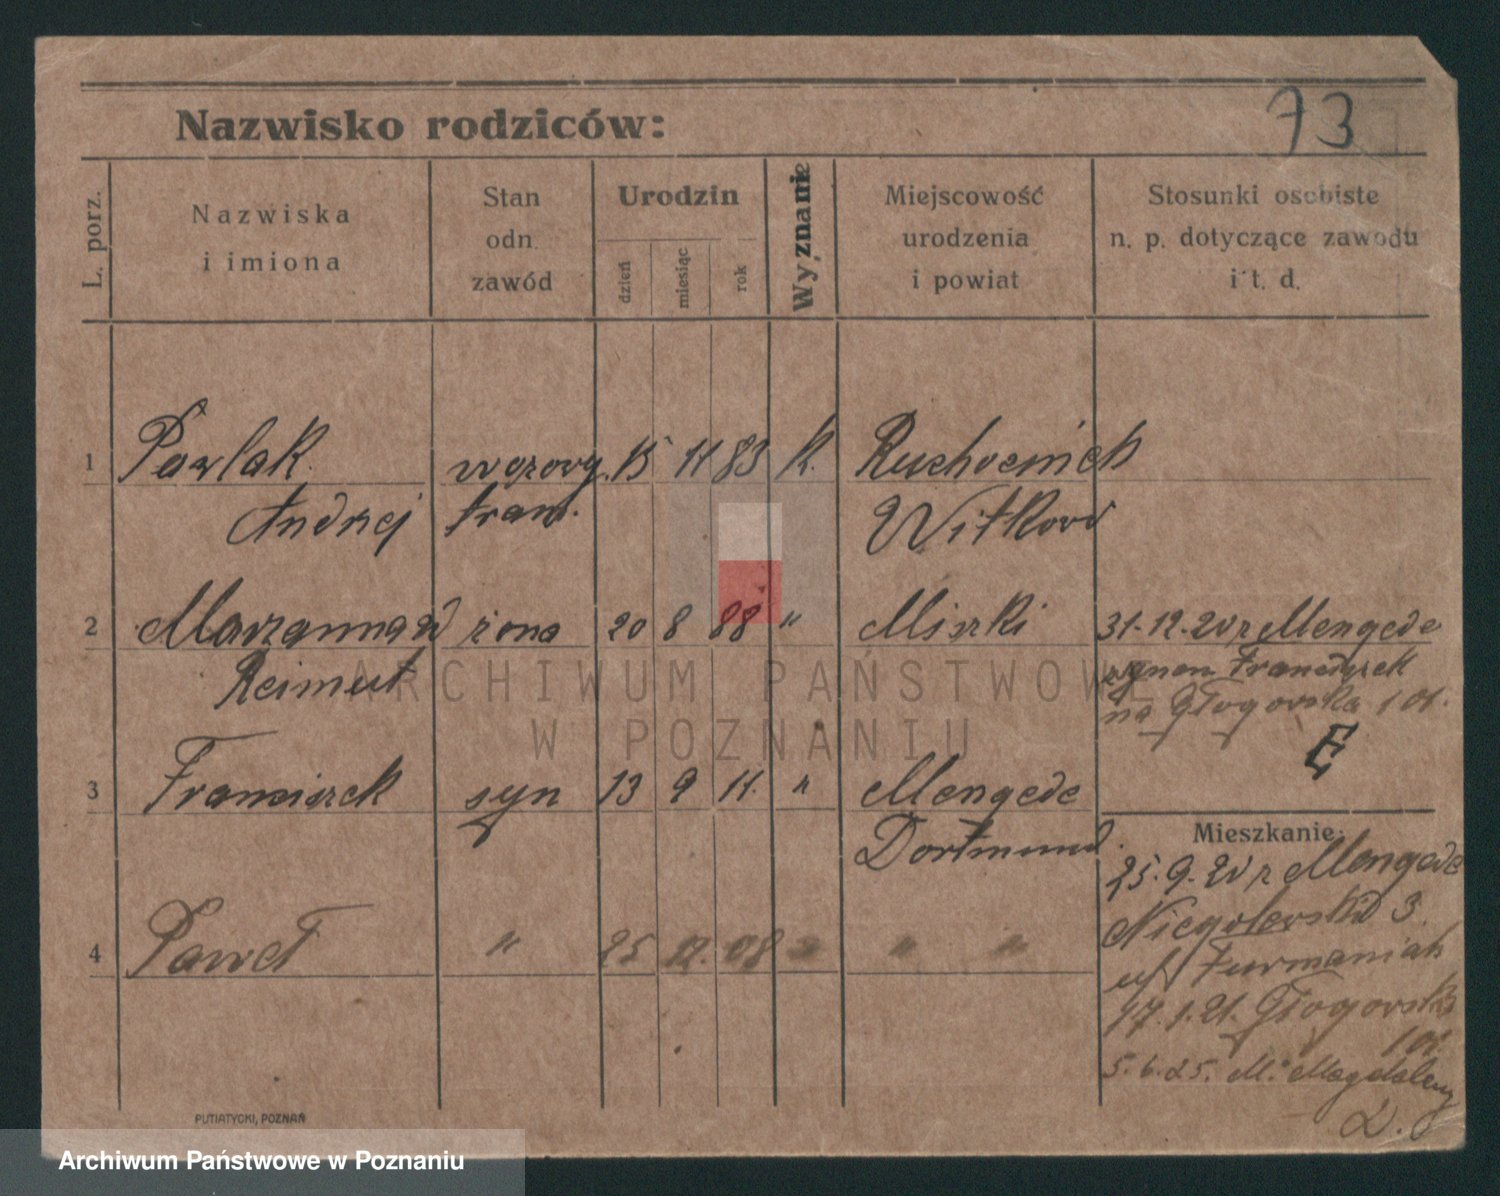 73
Nazwisko rodziców:
L. porz.
Nazwiska
i imiona
Stan
odn.
zawód
Urodzin
dzień
miesiąc
rok
Wyznanie
Miejscowość
urodzenia
i powiat
Stosunki osobiste
n. p. dotyczące zawodu
i t. d.
1 Pawlak worowy. 15 11 83 K. Ruchocinek
Andrzej tram. Witkowo
2 Maryanna żona 20 8 88 " Miszki 31.12.20 z Mengede
Reimut synem Franciszek
na Głogowska 101.
E
3 Franciszek syn 13 9 11. " Mengede
Dortmund.
Mieszkanie:
25.9.20 z Mengede
Niegolewskich 3.
u/ Furmaniak
4 Paweł " 25 12. 08 " " "
17.1.21. Głogowska
101
5.6.25. M. Magdaleny
2.
PUTIATYCKI, POZNAŃ
ARCHIWUM PAŃSTWOWE
W POZNANIU
Archiwum Państwowe w Poznaniu